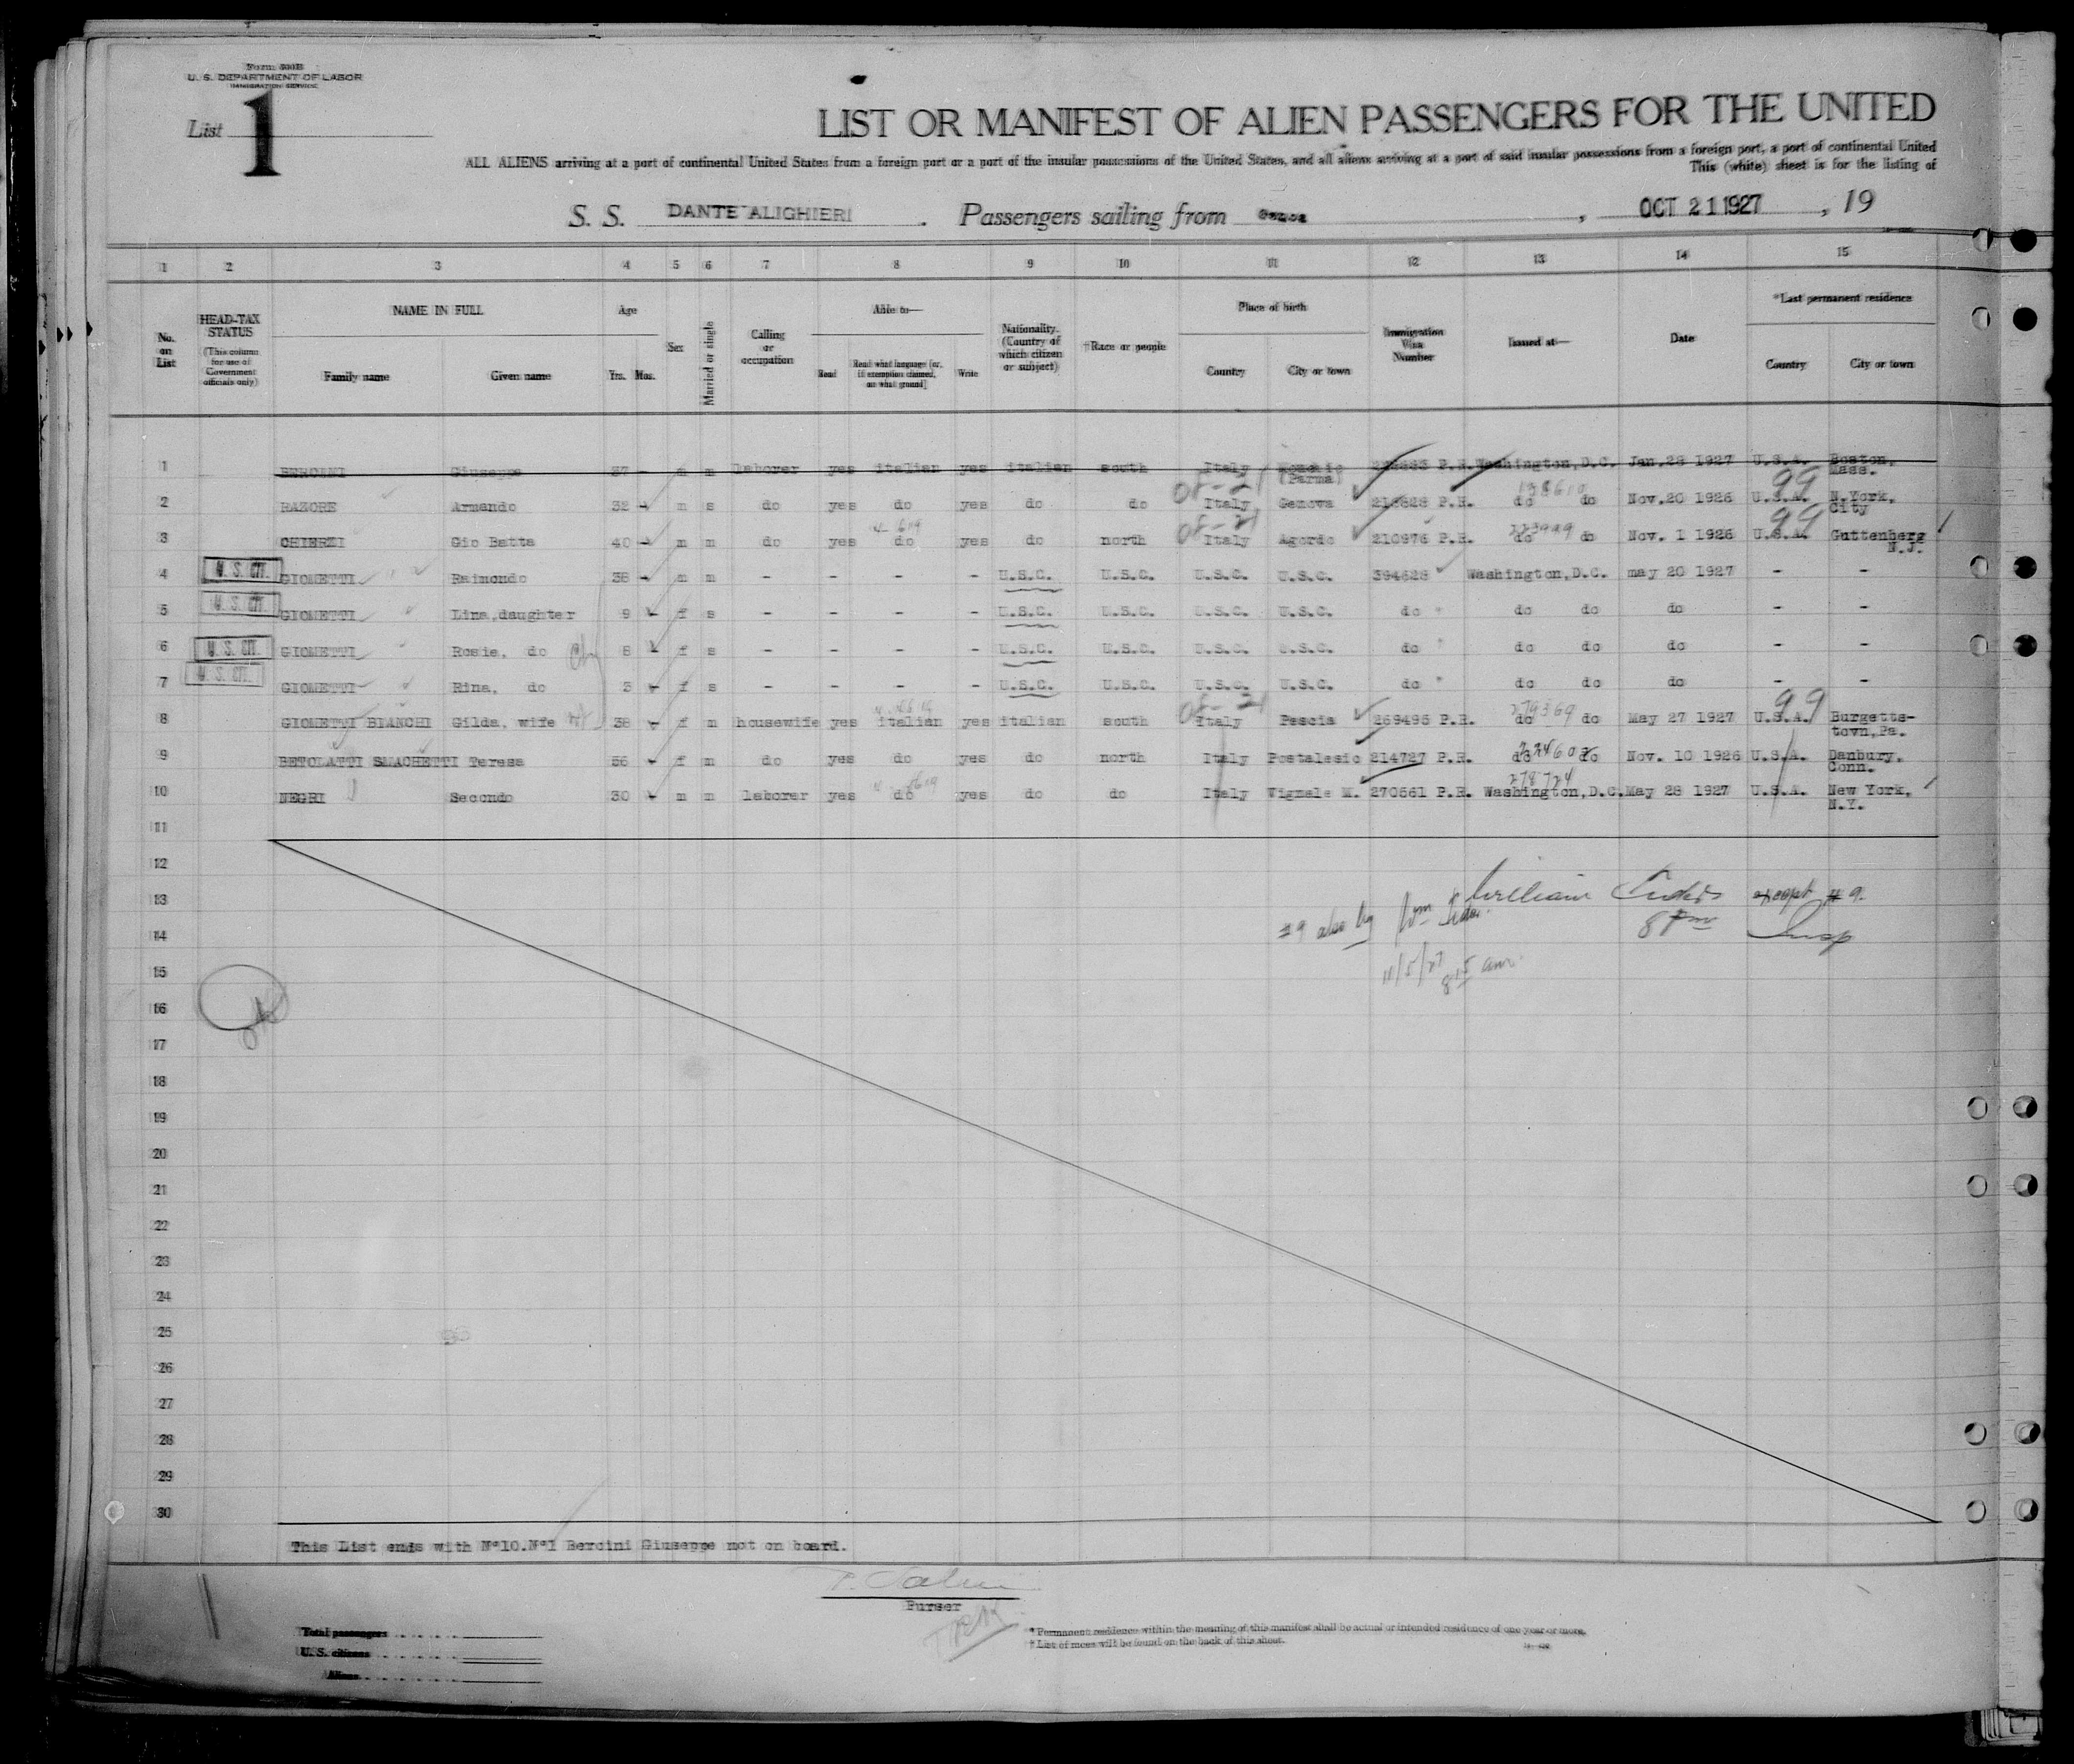 Form 500B
U. S. DEPARTMENT OF LABOR
IMMIGRATION SERVICE
List 1
LIST OR MANIFEST OF ALIEN PASSENGERS FOR THE UNITED
ALL ALIENS arriving at a port of continental United States from a foreign port or a port of the insular possessions of the United States, and all aliens arriving at a port of said insular possessions from a foreign port, a port of continental United
This (white) sheet is for the listing of
S. S. DANTE ALIGHIERI . Passengers sailing from Genoa , OCT 21 1927 , 19
1 2 3 4 5 6 7 8 9 10 11 12 13 14 15
No. on List
HEAD-TAX STATUS
(This column for use of Government officials only)
NAME IN FULL
Family name Given name
Age
Yrs. Mos.
Sex
Married or single
Calling or occupation
Able to—
Read Read what language [or, if exemption claimed, on what ground] Write
Nationality. (Country of which citizen or subject)
†Race or people
Place of birth
Country City or town
Immigration Visa Number
Issued at—
Date
*Last permanent residence
Country City or town
1 Giuseppe 37 - m m laborer yes italian yes italian south Italy (Parma) P.R. Washington,D.C. Jan.28 1927 U.S.A. Boston, Mass.
2 RAZORE Armando 32 - m s do yes do yes do do Italy Genova P.R. do do Nov.20 1926 U.S.A. N.York, City
99
3 CHIERZI Gio Batta 40 - m m do yes do yes do north Italy Agordo 210976 P.R. do do Nov. 1 1926 U.S.A. Guttenberg N.J.
99
4 U. S. CIT. GIOMETTI Raimondo 38 - m m - - - - U.S.C. U.S.C. U.S.C. U.S.C. 394628 Washington,D.C. may 20 1927 - -
5 U. S. CIT. GIOMETTI Lina,daughter 9 - f s - - - - U.S.C. U.S.C. U.S.C. U.S.C. do " do do do - -
6 U. S. CIT. GIOMETTI Rosie, do 8 - f s - - - - U.S.C. U.S.C. U.S.C. U.S.C. do " do do do - -
7 U. S. CIT. GIOMETTI Rina, do 3 - f s - - - - U.S.C. U.S.C. U.S.C. U.S.C. do " do do do - -
8 GIOMETTI BIANCHI Gilda, wife 38 - f m housewife yes italian yes italian south Italy Pescia 269495 P.R. do do May 27 1927 U.S.A. Burgetts-town,Pa.
99
9 BETOLATTI SMACHETTI Teresa 56 - f m do yes do yes do north Italy Postalesio 214727 P.R. do do Nov. 10 1926 U.S.A. Danbury, Conn.
278724
10 NEGRI Secondo 30 - m m laborer yes do yes do do Italy Vignale M. 270561 P.R. Washington,D.C. May 28 1927 U.S.A. New York, N.Y.
11
12
13 William except # 9.
14 #9 also by Wm 8 Pm Insp
15 11/5/27 8 15 am.
16
17
18
19
20
21
22
23
24
25
26
27
28
29
30
This List ends with N°10.N°1 Bercini Giuseppe not on board.
Purser
Total passengers
U. S. citizens
Aliens
* Permanent residence within the meaning of this manifest shall be actual or intended residence of one year or more.
† List of races will be found on the back of this sheet.